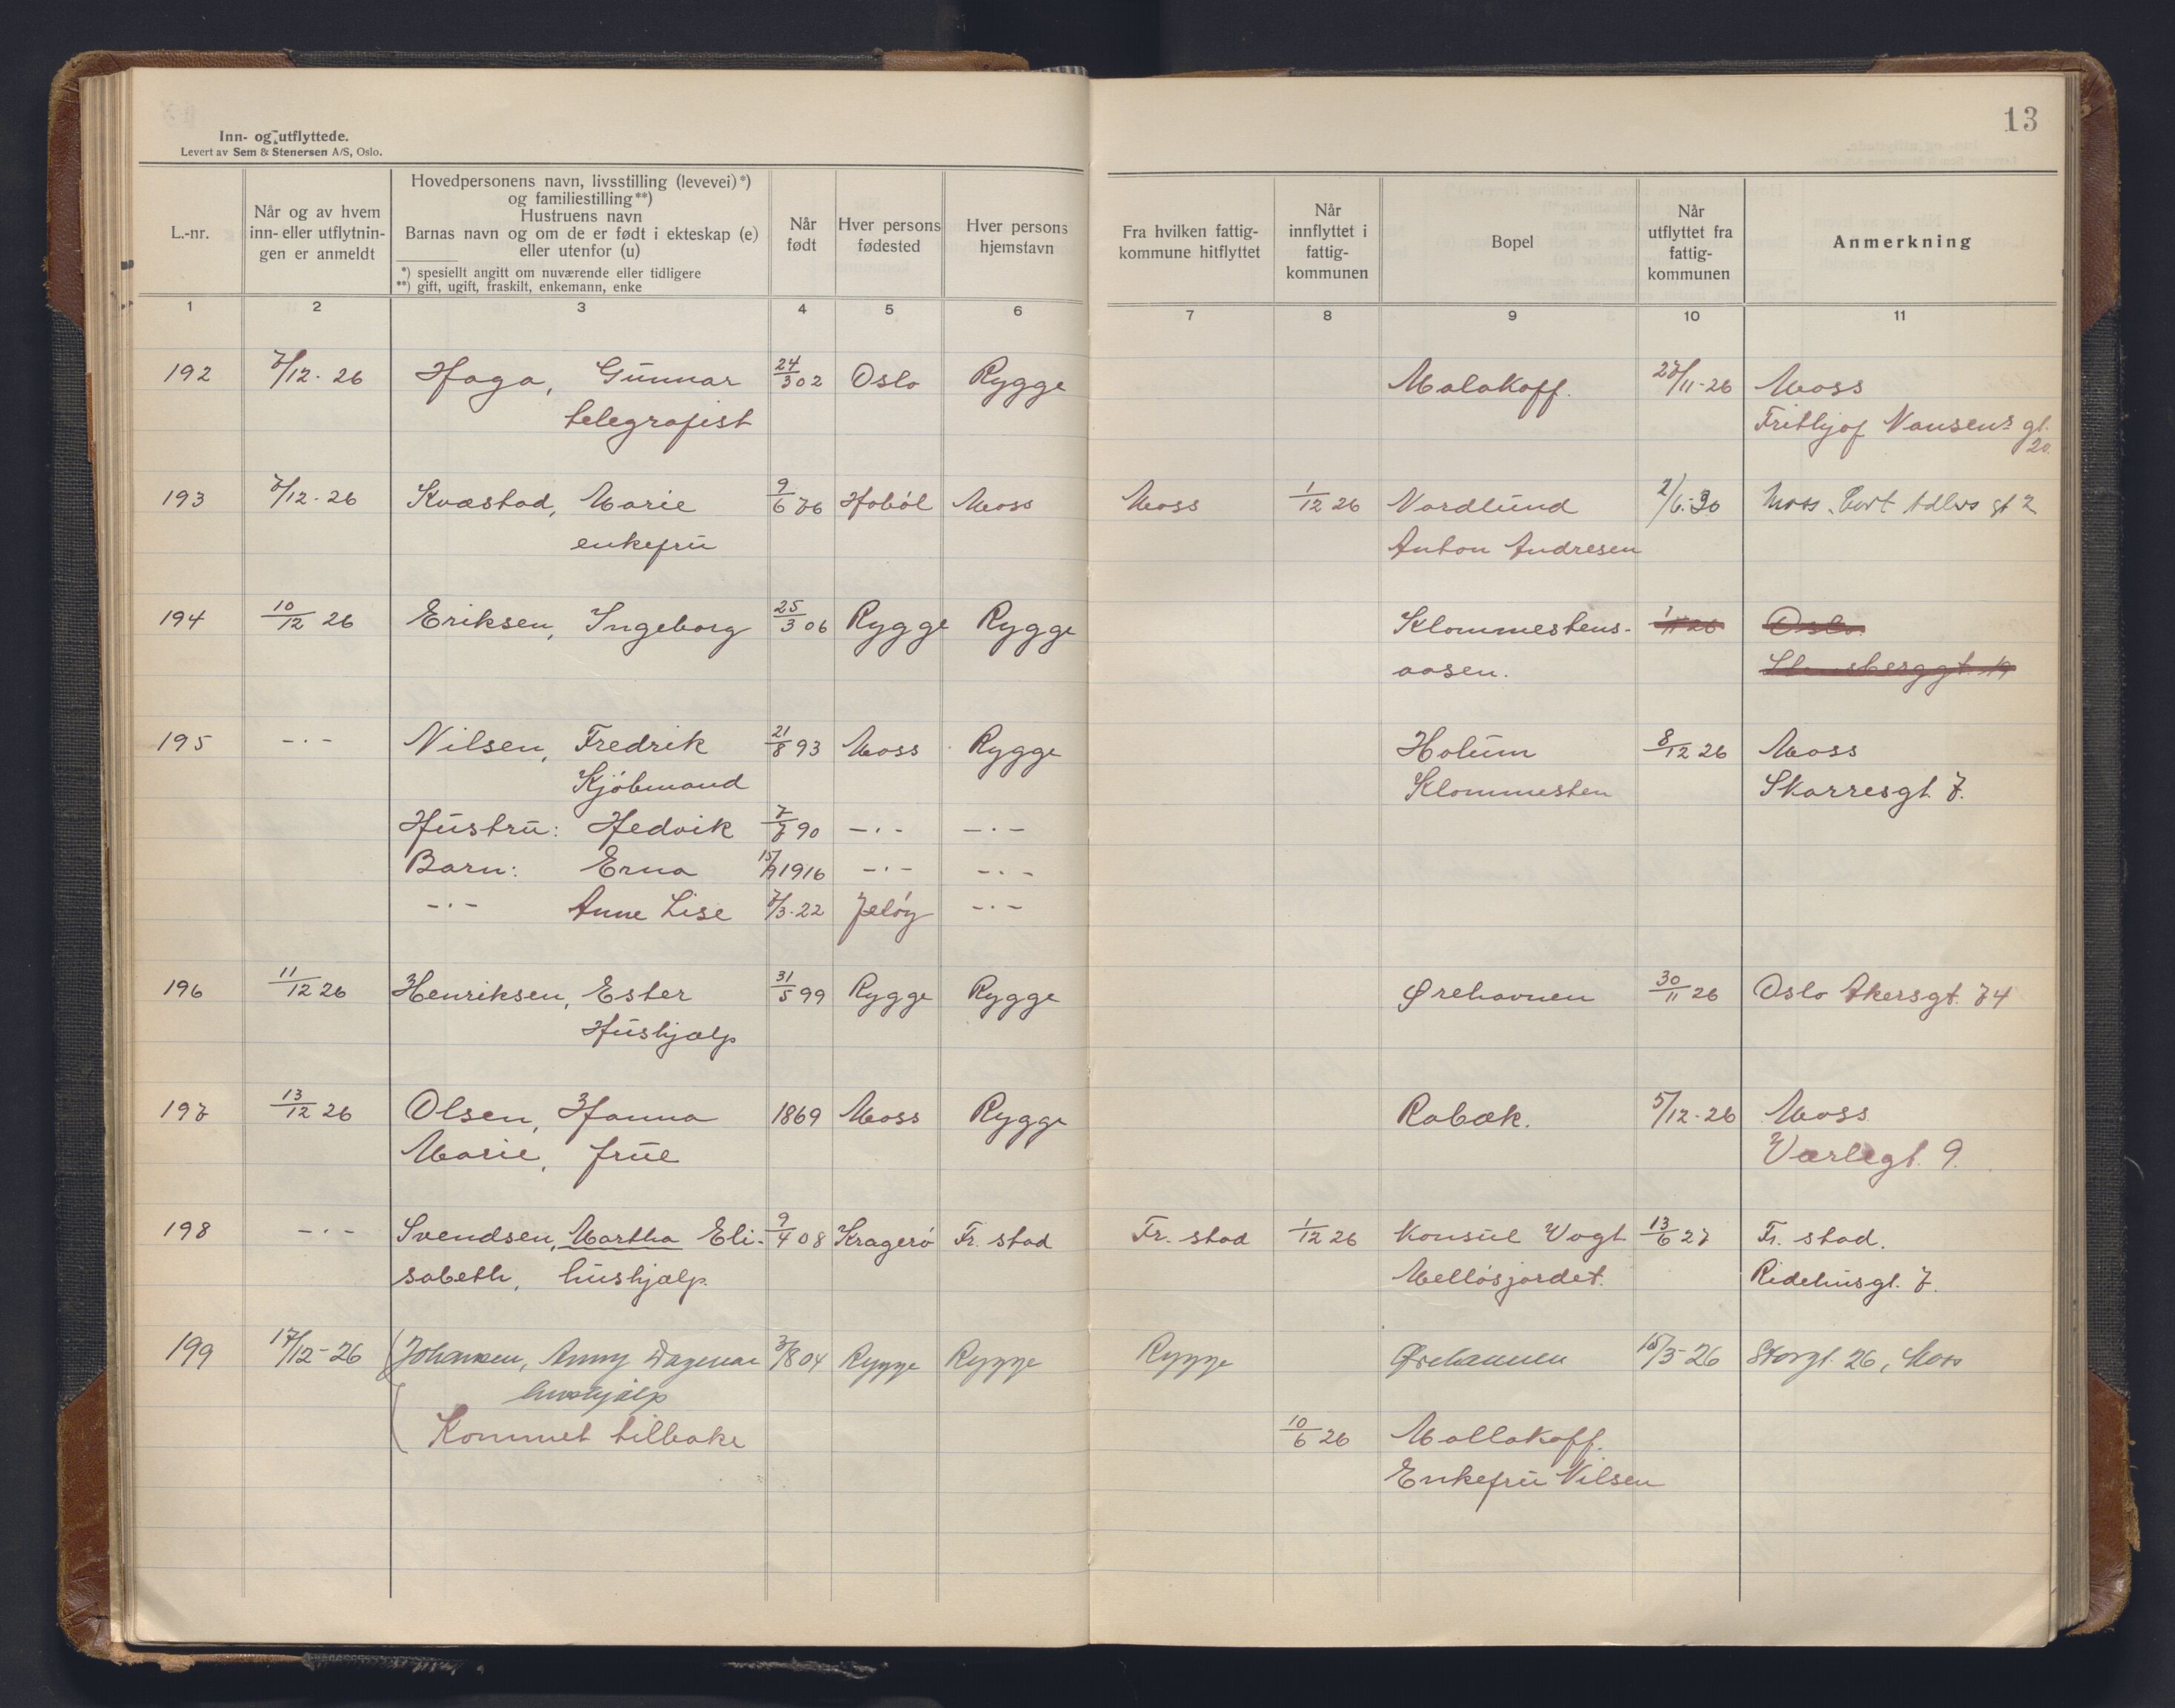 13
Inn- og utflyttede.
Levert av Sem & Stenersen A/S, Oslo.
L.-nr.
Når og av hvem
inn- eller utflytnin-
gen er anmeldt
Hovedpersonens navn, livsstilling (levevei)*)
og familiestilling**)
Hustruens navn
Barnas navn og om de er født i ekteskap (e)
eller utenfor (u)
*) spesiellt angitt om nuværende eller tidligere
**) gift, ugift, fraskilt, enkemann, enke
Når
født
Hver persons
fødested
Hver persons
hjemstavn
Fra hvilken fattig-
kommune hitflyttet
Når
innflyttet i
fattig-
kommunen
Bopel
Når
utflyttet fra
fattig-
kommunen
Anmerkning
1 2 3 4 5 6 7 8 9 10 11
192 7/12-26 Haga, Gunnar 24/3 02 Oslo Rygge Malakoff. 27/11-26 Moss
telegrafist Frithjof Nansens gt.
20.
193 7/12-26 Kvæstad, Marie 9/6 76 Hobøl Moss Moss 1/12 26 Nordlund 2/6-30 Moss gt 2
enkefru Anton Andresen
194 10/12 26 Eriksen, Ingeborg 25/3 06 Rygge Rygge Klommestens- 1/11 26 Oslo.
aasen.
195 -·- Nilsen, Fredrik 21/8 93 Moss Rygge Holum 8/12 26 Moss
Kjøbmand Klommesten Skarresgt. 7.
Hustru: Hedvik 7/7 90 -·- -·-
Barn: Erna 1916 -·- -·-
-·- Anne Lise 7/3-22 Jeløy -·-
196 11/12 26 Henriksen, Ester 31/5 99 Rygge Rygge Ørehavnen 30/11 26 Oslo Akersgt. 74
Hushjælp
197 13/12 26 Olsen, Hanna 1869 Moss Rygge Rabæk. 5/12-26 Moss.
Marie, frue Værlegt. 9.
198 -·- Svendsen, Martha Eli- 9/4 08 Kragerø Fr. stad Fr. stad 1/12 26 Konsul Vogt 13/6 27 Fr. stad.
sabeth, hushjælp. Melløsjordet. Ridehusgt. 7.
199 17/12-26 Johansen, Anny Dagmar 3/8 04 Rygge Rygge Rygge Ørehavnen 15/3-26 Storgt. 26, Moss
hushjælp
Kommet tilbake 10/6 26 Mallakoff.
Enkefru Nilsen